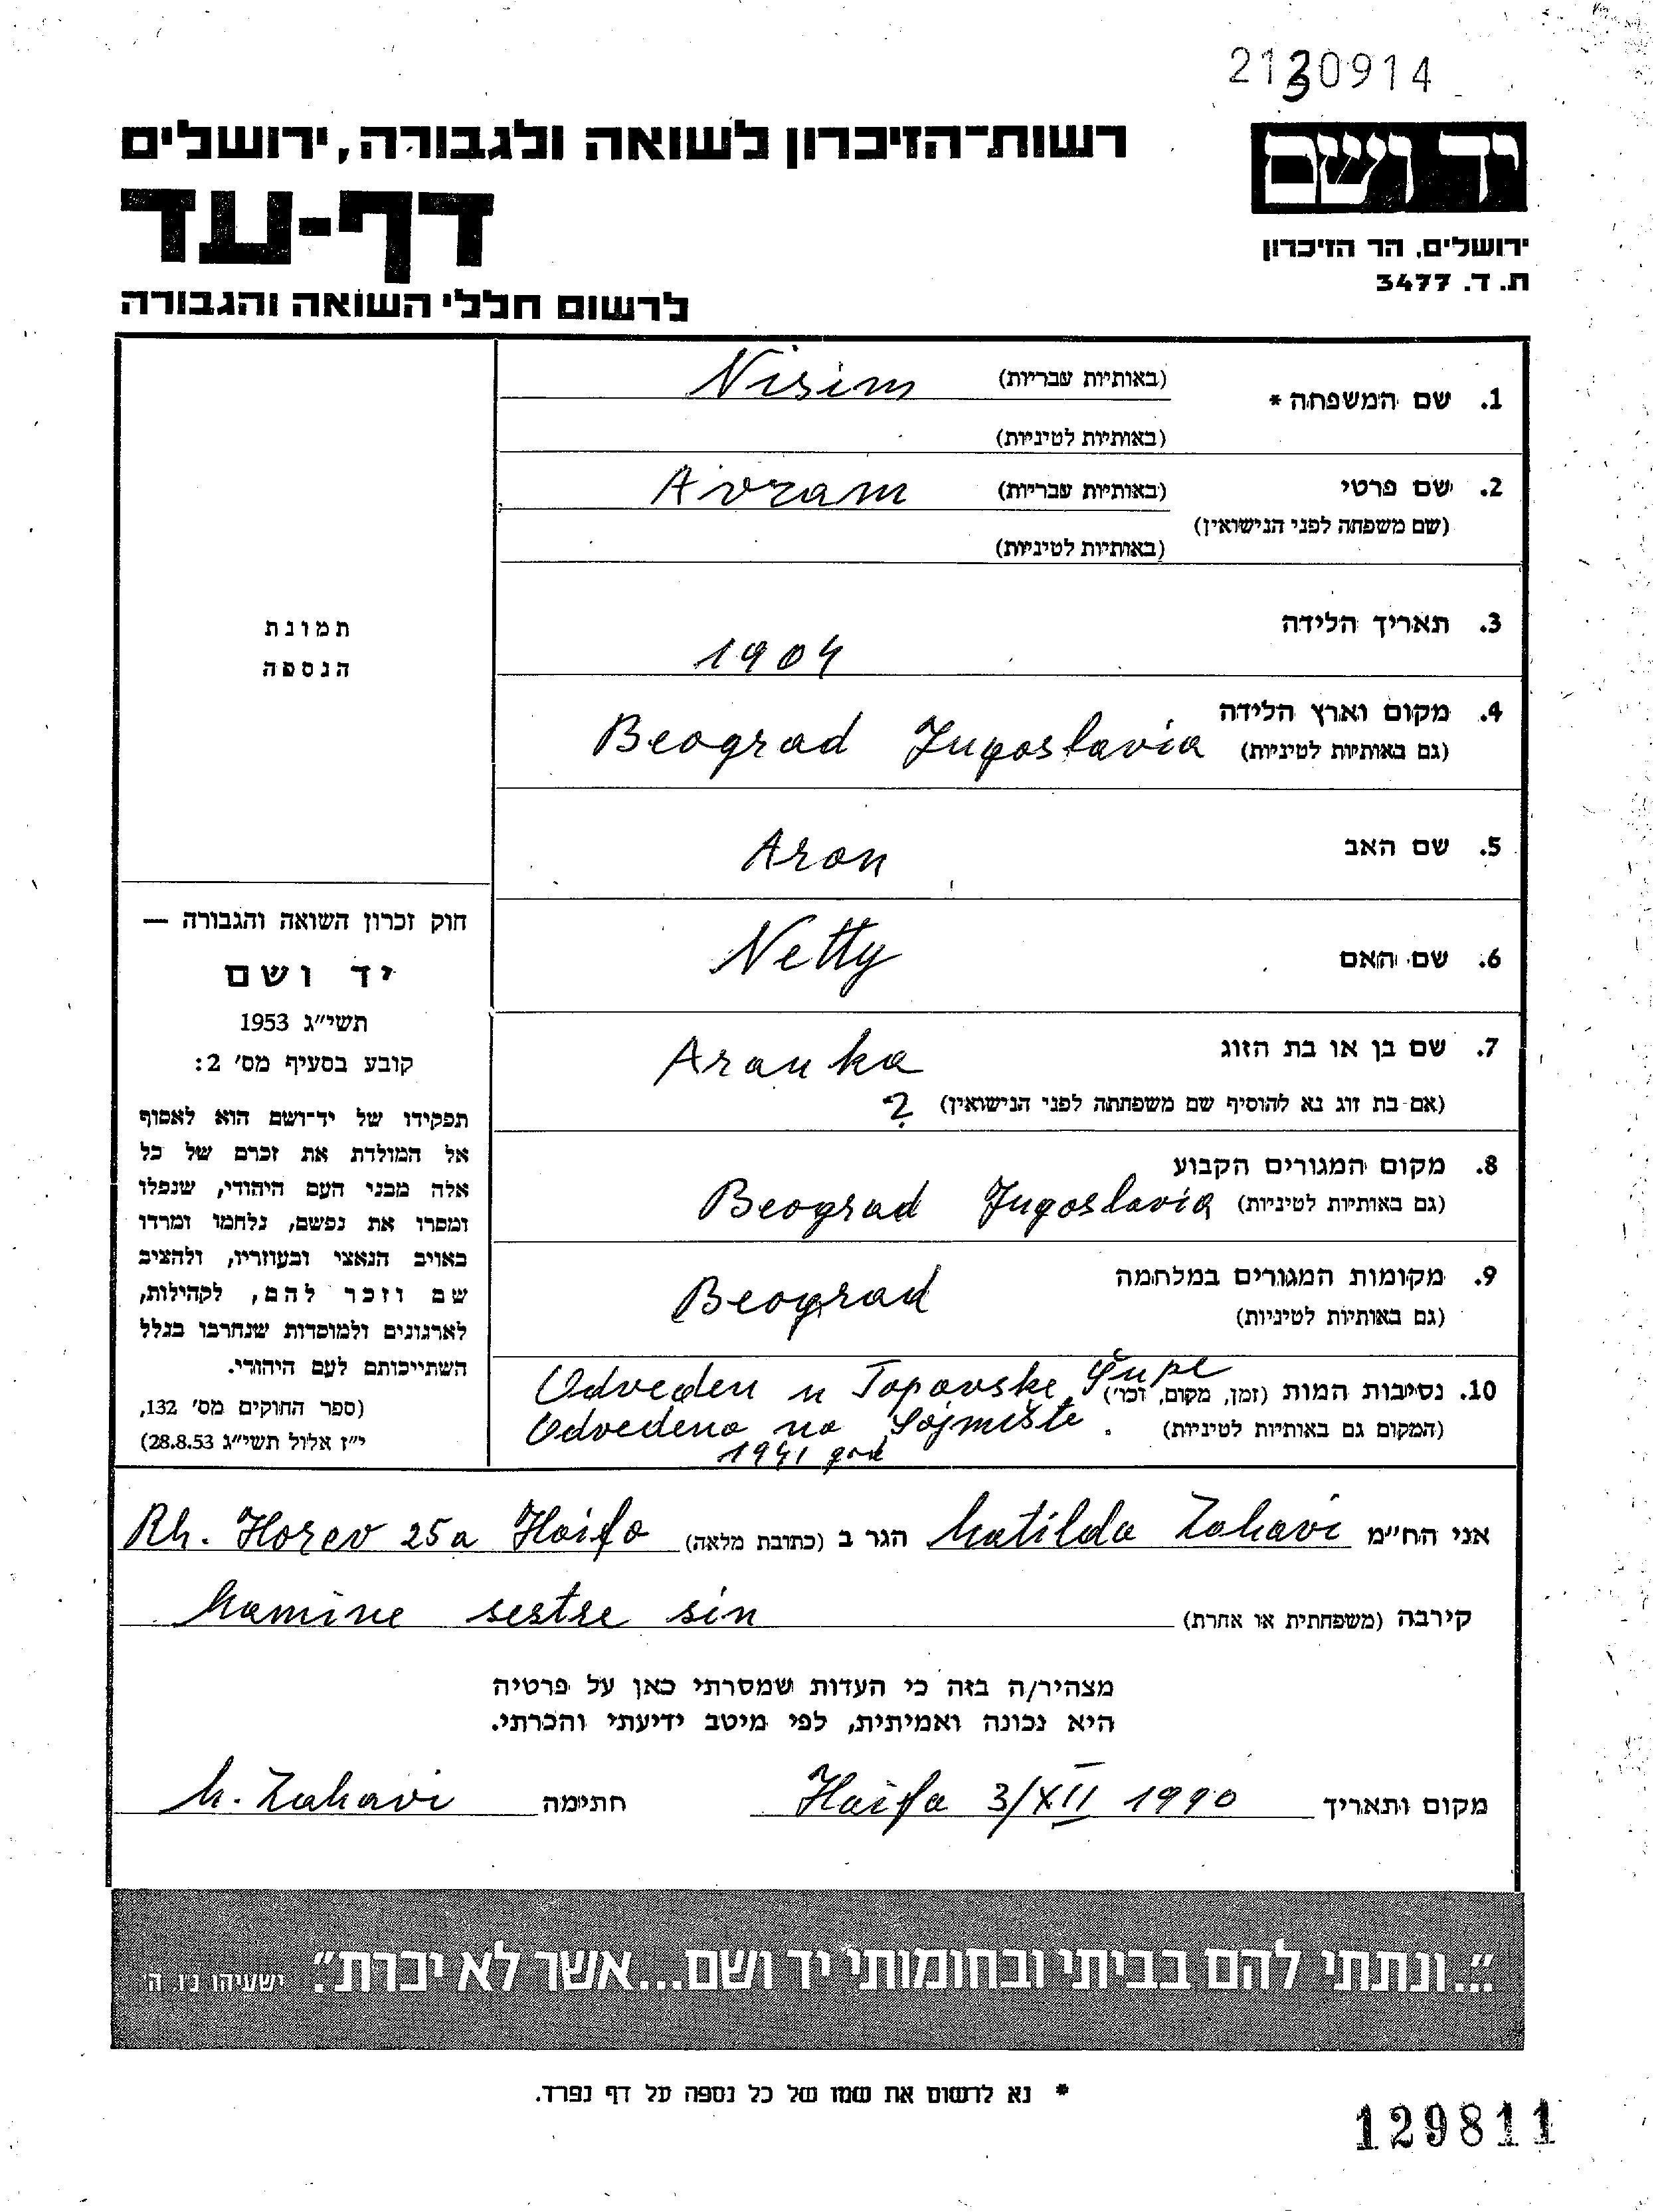 2130914
יד ושם
ירושלים, הר הזיכרון
ת. ד. 3477
רשות-הזיכרון לשואה ולגבורה, ירושלים
דף-עד
לרשום חללי השואה והגבורה
1. שם המשפחה * (באותיות עבריות) Nisim
(באותיות לטיניות)
2. שם פרטי (באותיות עבריות) Avram
(שם משפחה לפני הנישואין)
(באותיות לטיניות)
3. תאריך הלידה
1904
4. מקום וארץ הלידה
(גם באותיות לטיניות) Beograd Jugoslavia
5. שם האב Aron
6. שם האם Netty
7. שם בן או בת הזוג Aranka
(אם בת זוג נא להוסיף שם משפחתה לפני הנישואין) ?
8. מקום המגורים הקבוע
(גם באותיות לטיניות) Beograd Jugoslavia
9. מקומות המגורים במלחמה
(גם באותיות לטיניות) Beograd
10. נסיבות המות (זמן, מקום, וכו') Odveden u Topovske Šupe
(המקום גם באותיות לטיניות) Odvedena na Sajmište.
1941 god
תמונת
הנספה
חוק זכרון השואה והגבורה —
יד ושם
תשי"ג 1953
קובע בסעיף מס' 2:
תפקידו של יד-ושם הוא לאסוף
אל המולדת את זכרם של כל
אלה מבני העם היהודי, שנפלו
ומסרו את נפשם, נלחמו ומרדו
באויב הנאצי ובעוזריו, ולהציב
שם וזכר להם, לקהילות,
לארגונים ולמוסדות שנחרבו בגלל
השתייכותם לעם היהודי.
(ספר החוקים מס' 132,
י"ז אלול תשי"ג 28.8.53)
אני הח"מ Matilda Zahavi הגר ב (כתובת מלאה) Rh. Horev 25a Haifa
קירבה (משפחתית או אחרת) Mamine sestre sin
מצהיר/ה בזה כי העדות שמסרתי כאן על פרטיה
היא נכונה ואמיתית, לפי מיטב ידיעתי והכרתי.
מקום ותאריך Haifa 3/XII 1990 חתימה M. Zahavi
"...ונתתי להם בביתי ובחומותי יד ושם...אשר לא יכרת". ישעיהו נ"ו, ה'
* נא לרשום את שמו של כל נספה על דף נפרד.
129811